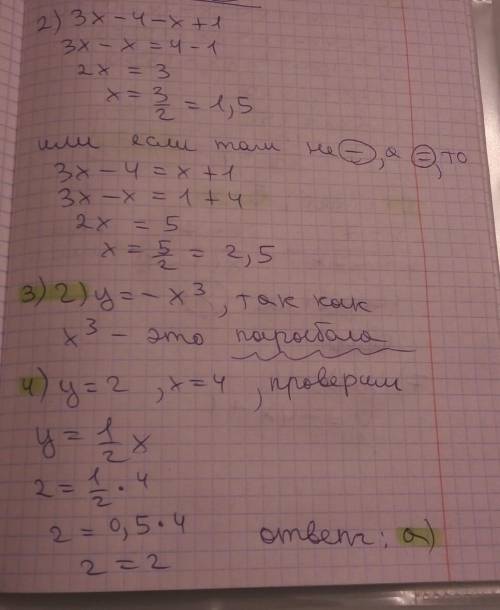 2) 3x-4-x+1
3x-x=4-1
2x = 3
x = 3/2 = 1,5
или если там не (-), а (=), то
3x-4 = x+1
3x-x = 1+4
2x = 5
x = 5/2 = 2,5
3) 2) y = -x³, так как
x³ - это парабола
4) y=2, x=4, проверим
y = 1/2 x
2 = 1/2 · 4
2 = 0,5 · 4 ответ: а)
2 = 2